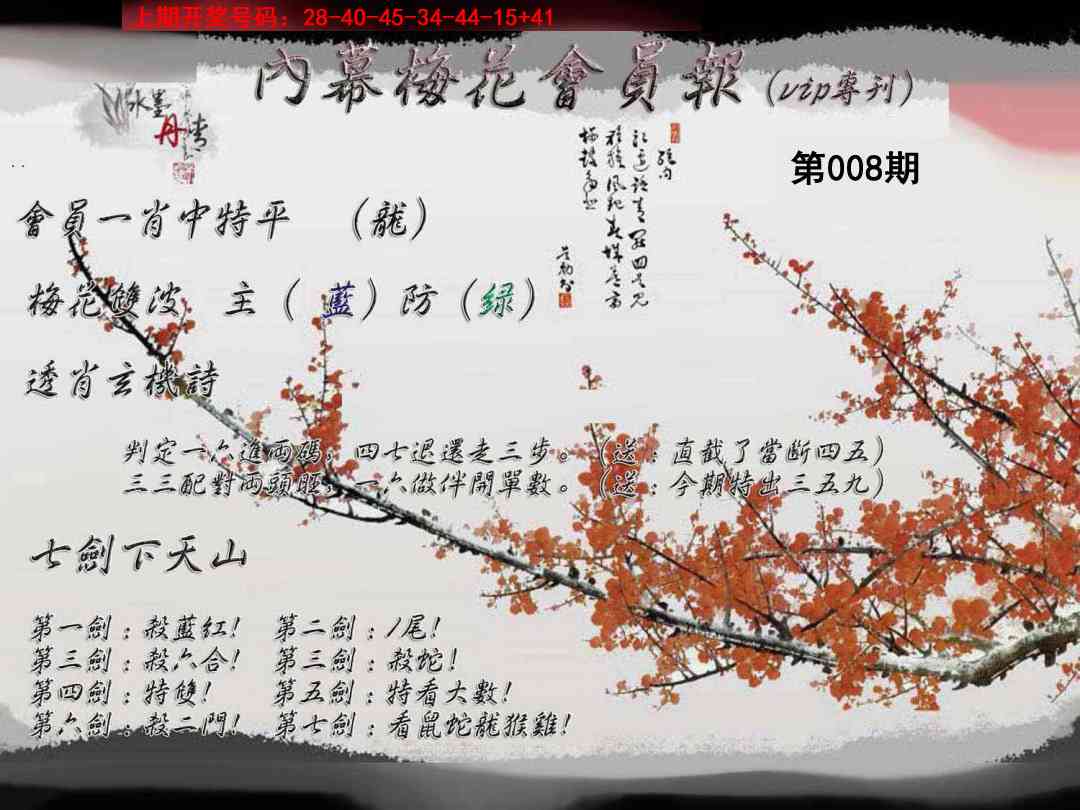 上期开奖号码：28-40-45-34-44-15+41
內幕梅花會員報（vip專刊）
水墨
丹青
第008期
會員一肖中特平 （龍）
梅花雙波 主（藍）防（緑）
透肖玄機詩
判定一六進両碼，四七退還走三步。（送：直截了當斷四五）
三三配對両頭旺，一六做伴開單數。（送：今期特出三五九）
七劍下天山
第一劍：殺藍紅！ 第二劍：1尾！
第三劍：殺六合！ 第三劍：殺蛇！
第四劍：特雙！ 第五劍：特看大數！
第六劍：殺二門！ 第七劍：看鼠蛇龍猴雞！